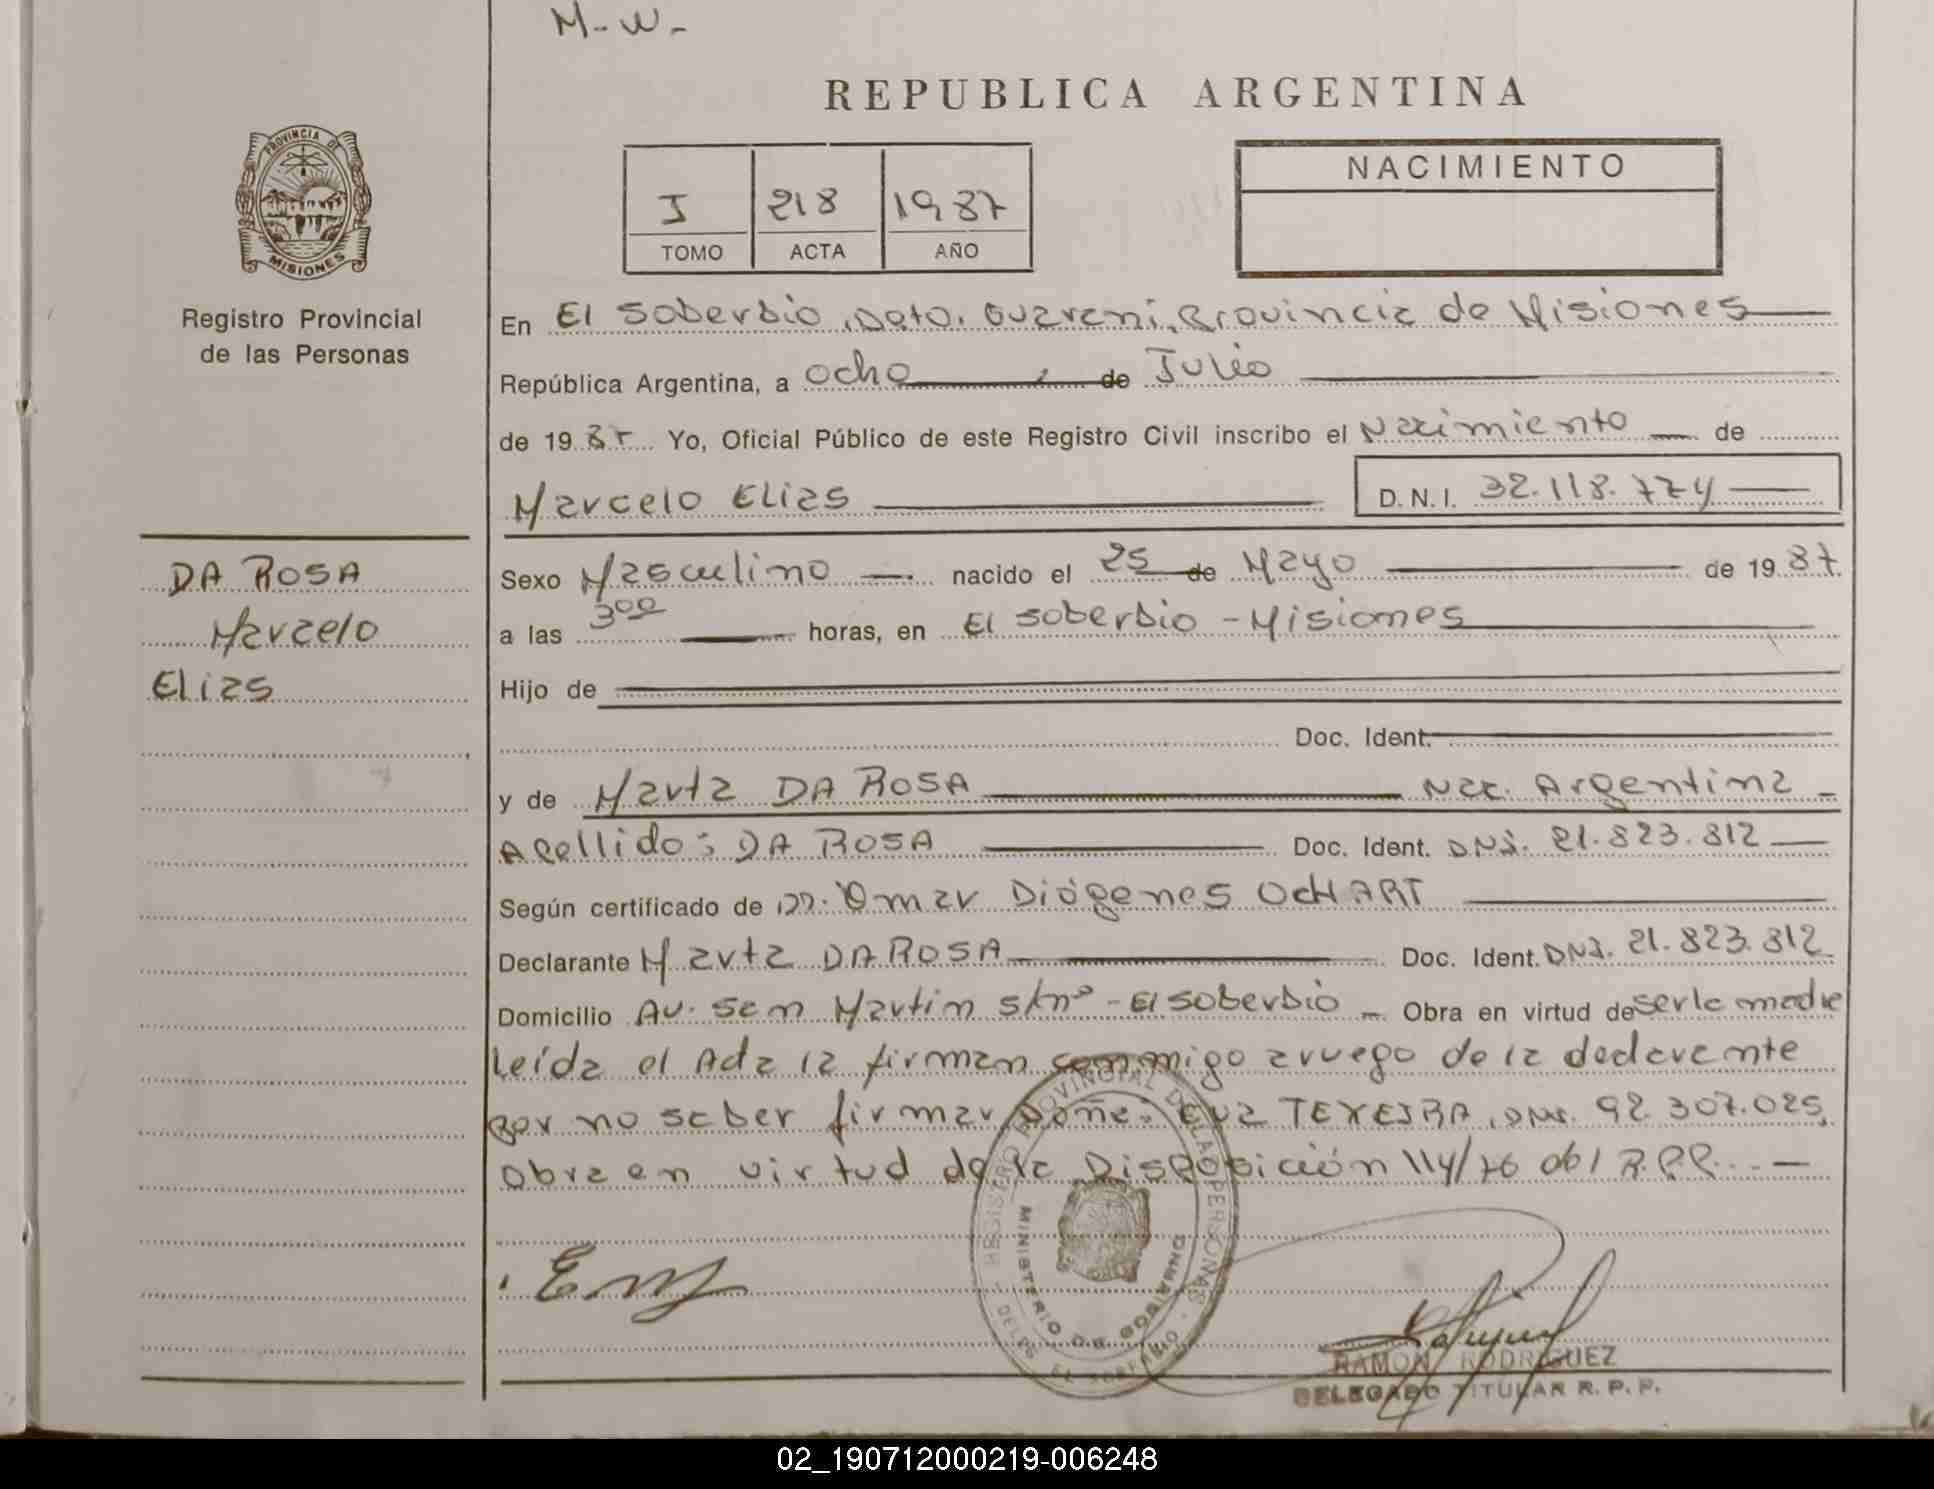 M-W-
REPUBLICA ARGENTINA
PROVINCIA DE
MISIONES
Registro Provincial
de las Personas
I 218 1987
TOMO ACTA AÑO
NACIMIENTO
En El Soberbio, Dpto. Guarani, Provincia de Misiones
República Argentina, a ocho de Julio
de 1987 Yo, Oficial Público de este Registro Civil inscribo el Nacimiento de
Marcelo Elias D.N.I. 32.118.774
DA ROSA
Marcelo
Elias
Sexo Masculino nacido el 25 de Mayo de 1987
a las 300 horas, en El Soberbio - Misiones
Hijo de
Doc. Ident.
y de Marta DA ROSA Nac. Argentina
Apellido: DA ROSA Doc. Ident. DNI. 21.823.812
Según certificado de Dr. Omar Diógenes OCHART
Declarante Marta DA ROSA Doc. Ident. DNI. 21.823.812
Domicilio Av. San Martin s/nº - El Soberbio - Obra en virtud de ser la madre
Leída el Acta la firman conmigo a ruego de la declarante
por no saber firmar Doña: Eva TEXEIRA, DNI. 92.307.025,
Obra en virtud de la Disposición 114/76 del R.P.P. -
REGISTRO PROVINCIAL DE LAS PERSONAS
MINISTERIO DE GOBIERNO
DELEG. EL SOBERBIO
RAMON RODRIGUEZ
DELEGADO TITULAR R. P. P.
02_190712000219-006248